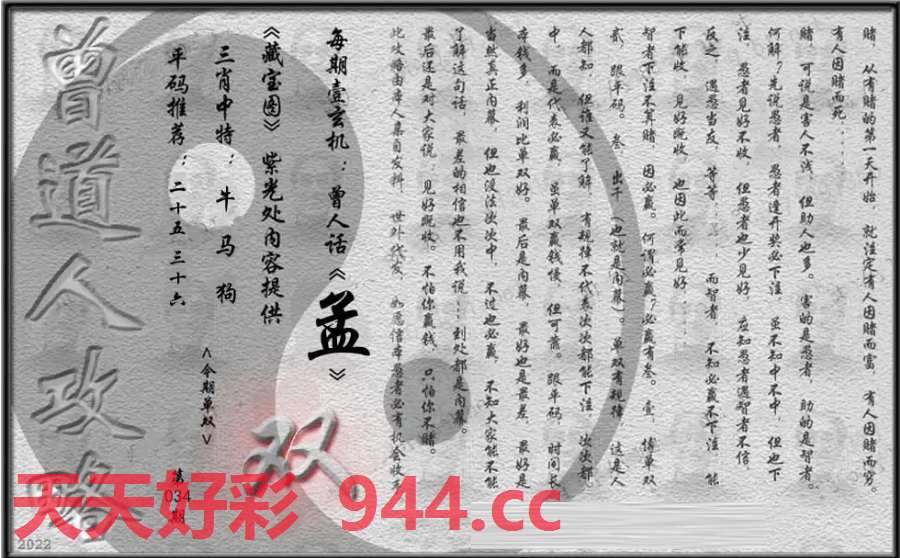 赌，从有赌的第一天开始，就注定有人因赌而富，有人因赌而穷。
有人因赌而死……
赌，可说是害人不浅，但助人也多。害的是愚者，助的是智者。
何解？先说愚者，愚者逢开奖必下注，虽不知中不中，但也下
注，愚者见好不收，但愚者也少见好，应知愚者遇智者不信，
反之，遇愚当友，等等……而智者，不知必赢不下注，能
下能收，见好既收，也因此而常见好……
智者下注不算赌，因必赢。何谓必赢？必赢有叁。壹，傅单双。
贰，跟平码。叁，出千（也就是内幕）。单双有规律，这是人
人都知，但谁又能了解，有规律不代表次次都能下注，次次都
中，而是代表必赢，虽单双赢钱慢，但可靠。跟平码，时间长，
本钱多，利润比单双好。最后是内幕，最好也是最差，最好是
当然真正内幕，但也没法次次中，不过也必赢，不知大家能不能
了解这句话，最差的相信也不用我说……到处都是内幕。
最后还是对大家说，见好既收。不怕你赢钱，只怕你不赌。
此攻略由本人亲自发料，世外代发，如愿信本愚者必有机会收手
每期壹玄机：曾人话《孟》
《藏宝图》紫光处内容提供
三肖中特：牛 马 狗
平码推荐：二十五 三十六
<今期单双>
双
第
034
期
曾道人攻略
天天好彩 944.cc
2022